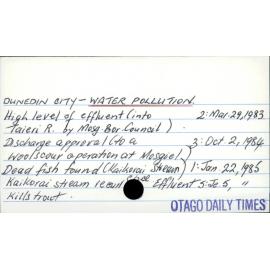 DUNEDIN CITY - WATER POLLUTION.
High level of effluent (into 2: Mar. 29, 1983
Taieri R. by Mosg. Bor. Council)
Discharge approval (to a 3: Oct 2, 1984
woolscour operation at Mosgiel)
Dead fish found (Kaikorai Stream) 1: Jan 22, 1985
Kaikorai stream Effluent 5: Je. 5, "
kills trout.
OTAGO DAILY TIMES